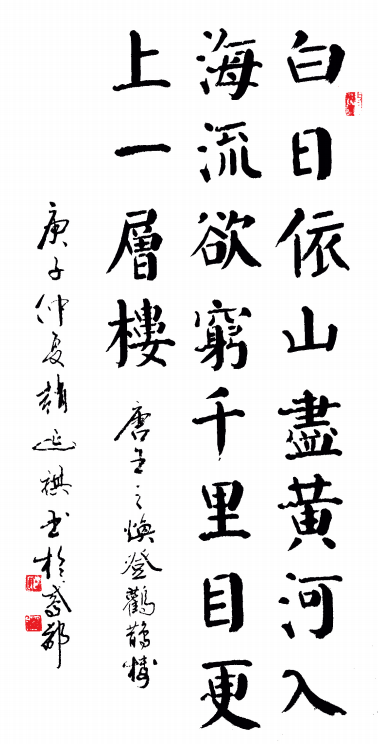 白日依山盡黃河入
海流欲窮千里目更
上一層樓
唐王之煥登鸛鵲樓
庚子仲夏趙延祺書於成都